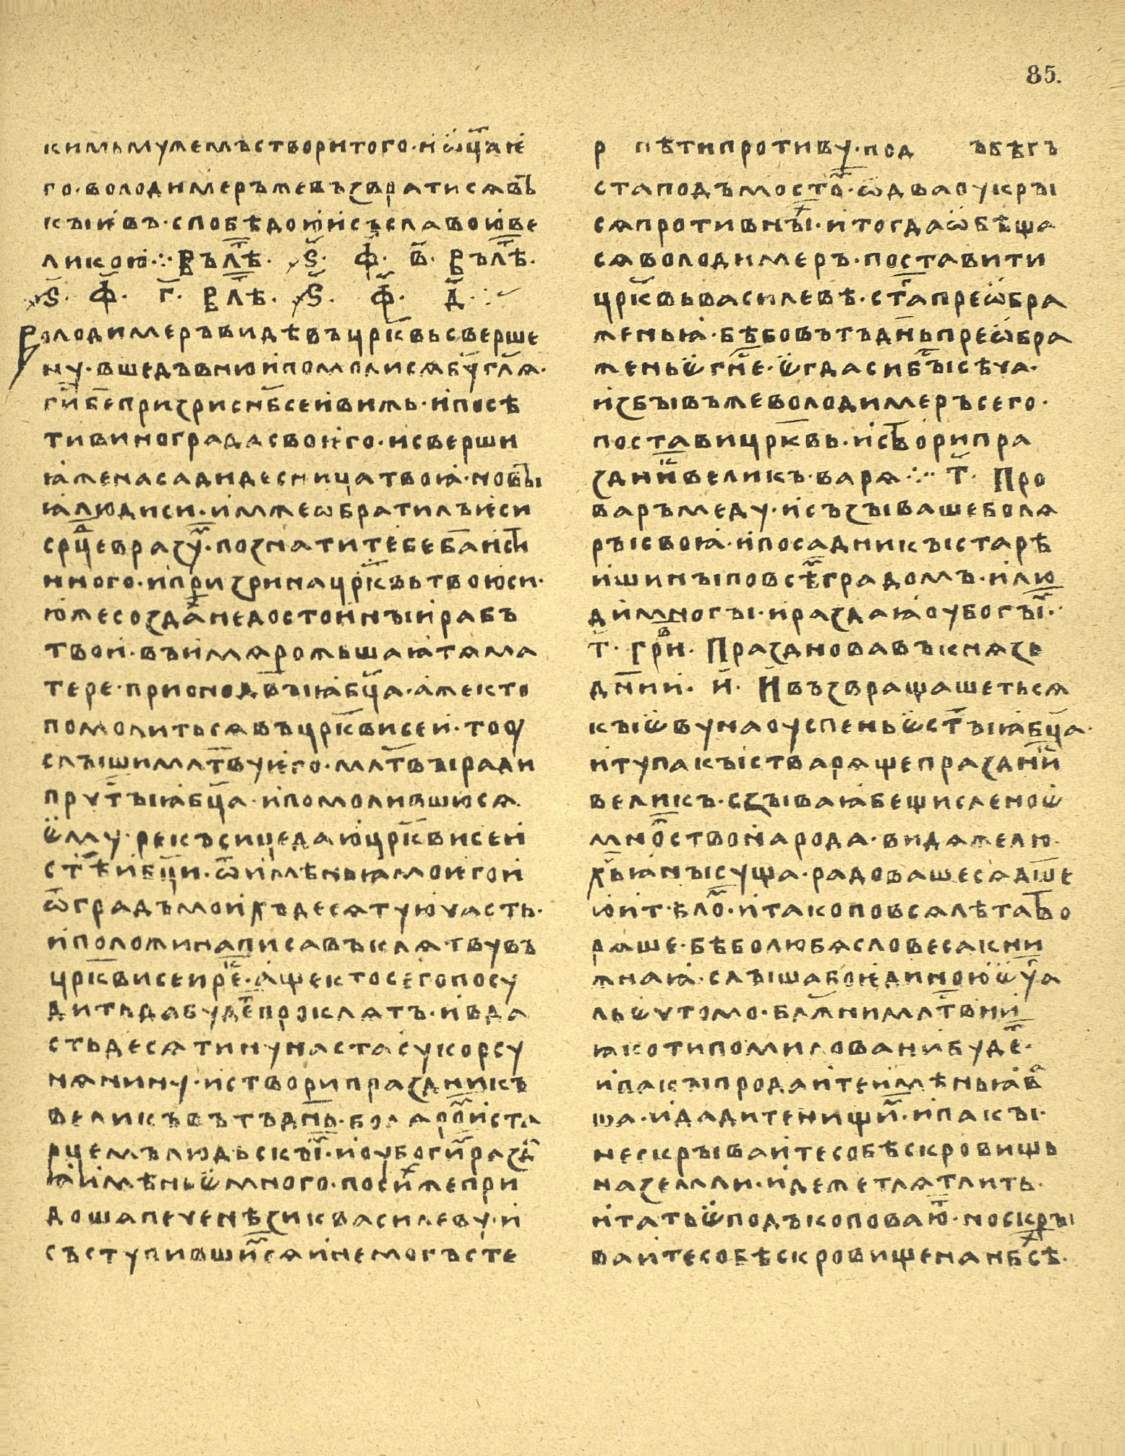 85.
кимь мужемъ створи того · и ѿц҃а ѥ
го · володимеръ же възвратисѧ въ
кыѥвъ · с побѣдою и съ славою ве
ликою ⁘ В лѣ · ѕ҃ · ф҃ · в҃ · В лѣ ·
ѕ҃ · ф҃ · г҃ · В лѣ · ѕ҃ · ф҃ · д҃ ·
Володимеръ видѣвъ цр҃квь сверше
ну · вшедъ в ню и помолисѧ бу҃ гл҃ѧ ·
ги҃ бе҃ призри с нб҃се и вижь · и посѣ
ти винограда своѥго · и сверши
ꙗже насади десница твоꙗ · новыꙗ
люди си · имже ѡбратилъ ѥси
срц҃е в разу҃ · познати тебе ба҃ исти
нного · и призри на цр҃квь твою си ·
юже создах҃ недостоинꙑи рабъ
твои · въ имѧ рожьшаꙗ тѧ ма
тере · приснодв҃ыꙗ бц҃а · аже кто
помолитьсѧ въ цр҃кви сеи · то оу
слꙑши млт҃ву ѥго · млт҃вꙑ ради
прч҃тꙑꙗ бц҃а · и помолившюсѧ
ѥму · рекъ сице даю цр҃кви сеи
ст҃ѣи бц҃и · ѿ имѣньꙗ моѥго и
ѿ градъ моихъ десѧтую часть ·
и положи написавъ клѧтву въ
цр҃кви сеи рч҃е · аще кто сего посу
дить да буде҃ проклѧтъ · и вда
сть десѧтину настасу корсу
нѧнину · и створи праздникъ
великъ въ тъ дн҃ь · болѧро҃ и ста
рцемъ людьскꙑ҃ · и оубоги҃ разда
ꙗ имѣньѥ много · по си҃ же при
доша печенѣзи к василеву · и
съступившисѧ и не могъ сте
рпѣти противу · под бѣгъ
ста подъ мосто҃ · ѡдва оукрꙑ
сѧ противнꙑ҃ · и тогда ѡбѣща
сѧ володимеръ · поставити
цр҃квь василевѣ · ст҃га преѡбра
женьꙗ · бѣ бо въ тъ дн҃ь преѡбра
женьѥ гн҃е · ѥгда си бꙑ҃ сѣча ·
избывъ же володимеръ сего ·
постави цр҃квь · и створи пра
здни҃ великъ · варѧ ⁘ т҃ · Про
варъ меду · и съзываше болѧ
ры своꙗ · и посадники старѣ
ишинꙑ по всѣ҃ градомъ · и лю
ди многꙑ · и раздаꙗ оубогы҃ ·
т҃ · грв҃и · Праздновавъ кнѧзь
дн҃ии · и҃ · И възвращашетьсѧ
кꙑѥву на оуспеньѥ ст҃ꙑꙗ бц҃а ·
и ту пакꙑ стварѧше праздни҃
великъ · сзываꙗ бещисленоѥ
мно҃ство народа · видѧ же лю
х҃ьꙗнꙑ суща · радовашесѧ дш҃е
ю и тѣло҃ · и тако по всѧ лѣта тво
рѧше · бѣ бо любѧ словеса кни
жнаꙗ · слꙑша бо ѥдиною ѥу҃а
льѥ чтомо · блж҃ни млт҃внии
ꙗко ти помиловани буде҃ ·
и пакꙑ продаите имѣньꙗ ва
ша · и дадите нищи҃ · и пакы ·
не скрываите собѣ скровищь
на земли · идеже тлѧ тлить ·
и татьѥ подъкоповаю҃ · но скрꙑ
ваите собѣ скровище на нб҃сѣ ·